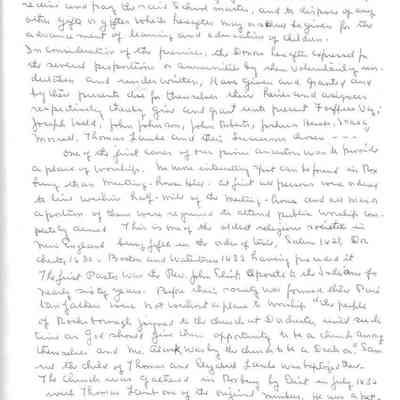 receive and pay the said School master, and to dispose of any
other gifts or gifts which hereafter may or shall be given for the
advancement of learning and education of children.
In consideration of the premises, the Donors hereafter expressed for
the several proportions or annuities by them voluntarily un-
dertaken and underwritten, Have given and granted and
by these presents doe for themselves their Heires and assignees
respectively hereby give and grant unto present Feoffees Viz;
Joseph Weld, John Johnson, John Roberts, Joshua Hewes, Isaac
Morrell, Thomas Lambe and their Successors chosen - - -
One of the first cares of our pioneer ancestors was to provide
a place of worship. The more interesting spot can be found in Rox
bury than Meeting-House Hill. At first all persons were ordered
to live within half-mile of the Meeting-House and all
a portion of them were required to attend public worship com-
pletely armed. This is one of the oldest religious societies in
New England being fifth in the order of time, Salem 1629, Dor
chester 1630, Boston and Watertown 1632 having preceded it
The first Pastor was the Rev. John Eliot Apostle to the Indians for
nearly sixty years. Before their society was formed these Puri
tan fathers were not without a place to worship "the people
of Rocksborough joyned to the church at Dorchester until such
time as God should give them opportunity to be a church among
themselves and Mr. was by the church to be a Deacon." Sam
uel the child of Thomas and Elizabeth Lambe was baptized there.
The Church was gathered in Roxbury by Eliot in July 1632
were Thomas Lambe one of the original members. He was a